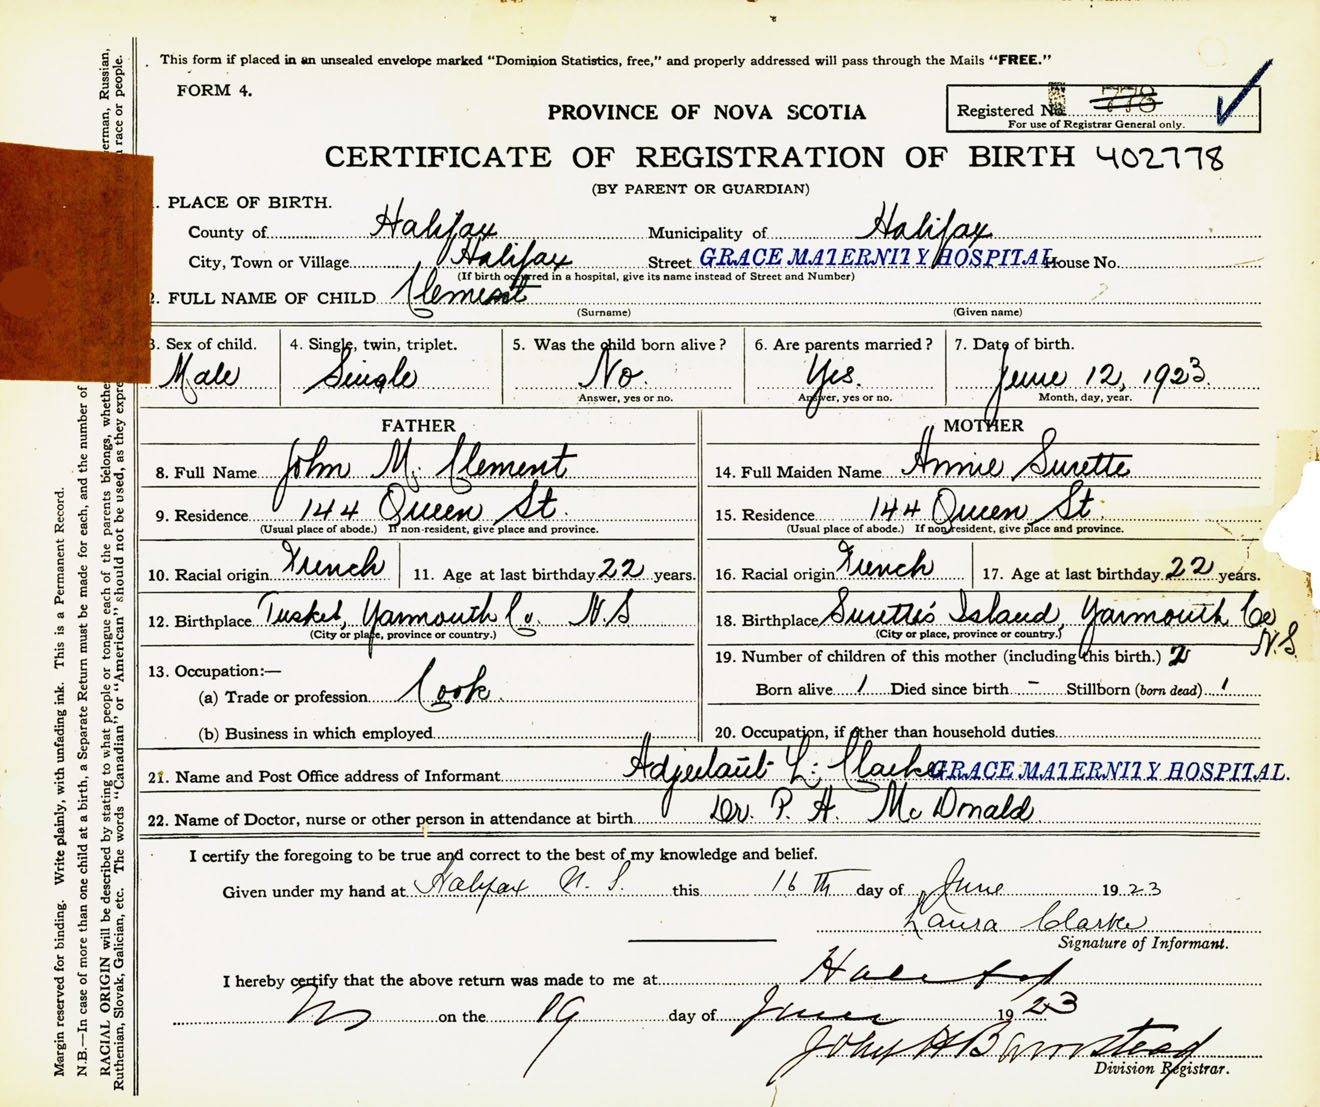 This form if placed in an unsealed envelope marked "Dominion Statistics, free," and properly addressed will pass through the Mails "FREE."
FORM 4.
PROVINCE OF NOVA SCOTIA
Registered No. 778
For use of Registrar General only.
CERTIFICATE OF REGISTRATION OF BIRTH 402778
(BY PARENT OR GUARDIAN)
1. PLACE OF BIRTH.
County of Halifax Municipality of Halifax
City, Town or Village Halifax Street GRACE MATERNITY HOSPITAL House No.
(If birth occurred in a hospital, give its name instead of Street and Number)
2. FULL NAME OF CHILD Clement
(Surname) (Given name)
3. Sex of child. 4. Single, twin, triplet. 5. Was the child born alive? 6. Are parents married? 7. Date of birth.
Male Single No. Yes. June 12, 1923.
Answer, yes or no. Answer, yes or no. Month, day, year.
FATHER MOTHER
8. Full Name John M. Clement 14. Full Maiden Name Annie Surette
9. Residence 144 Queen St. 15. Residence 144 Queen St.
(Usual place of abode.) If non-resident, give place and province. (Usual place of abode.) If non-resident, give place and province.
10. Racial origin French 11. Age at last birthday 22 years. 16. Racial origin French 17. Age at last birthday 22 years.
12. Birthplace Tusket, Yarmouth Co. N.S 18. Birthplace Surette's Island, Yarmouth Co N.S.
(City or place, province or country.) (City or place, province or country.)
13. Occupation:— 19. Number of children of this mother (including this birth.) 2
(a) Trade or profession Cook Born alive 1 Died since birth - Stillborn (born dead) 1
(b) Business in which employed 20. Occupation, if other than household duties
21. Name and Post Office address of Informant Adjutant L. Clarke GRACE MATERNITY HOSPITAL.
22. Name of Doctor, nurse or other person in attendance at birth Dr. P. H. McDonald
I certify the foregoing to be true and correct to the best of my knowledge and belief.
Given under my hand at Halifax N.S. this 16th day of June 1923
Laura Clarke
Signature of Informant.
I hereby certify that the above return was made to me at Halifax
NS on the 19 day of June 1923
John H Barnstead
Division Registrar.
Margin reserved for binding. Write plainly, with unfading ink. This is a Permanent Record.
N.B.—In case of more than one child at a birth, a Separate Return must be made for each, and the number of
RACIAL ORIGIN will be described by stating to what people or tongue each of the parents belongs, whether erman, Russian,
Ruthenian, Slovak, Galician, etc. The words "Canadian" or "American" should not be used, as they expre race or people.